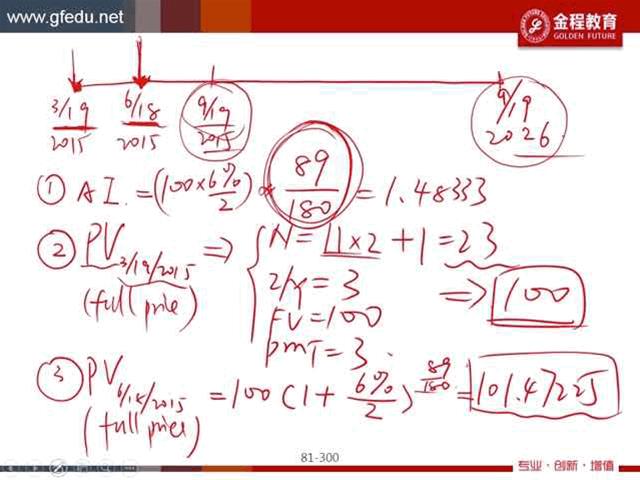 www.gfedu.net
金程教育
GOLDEN FUTURE
3/19 2015
6/18 2015
9/19 2015
9/19 2026
① A I. = (100×6%/2) × 89/180 = 1.48333
② PV 3/19/2015 (full price) ⇒ { N = 11×2 + 1 = 23
I/Y = 3
FV = 100
PMT = 3. ⇒ 100
③ PV 6/18/2015 (full price) = 100 (1 + 6%/2)^89/180 = 101.47225
81-300
专业·创新·增值